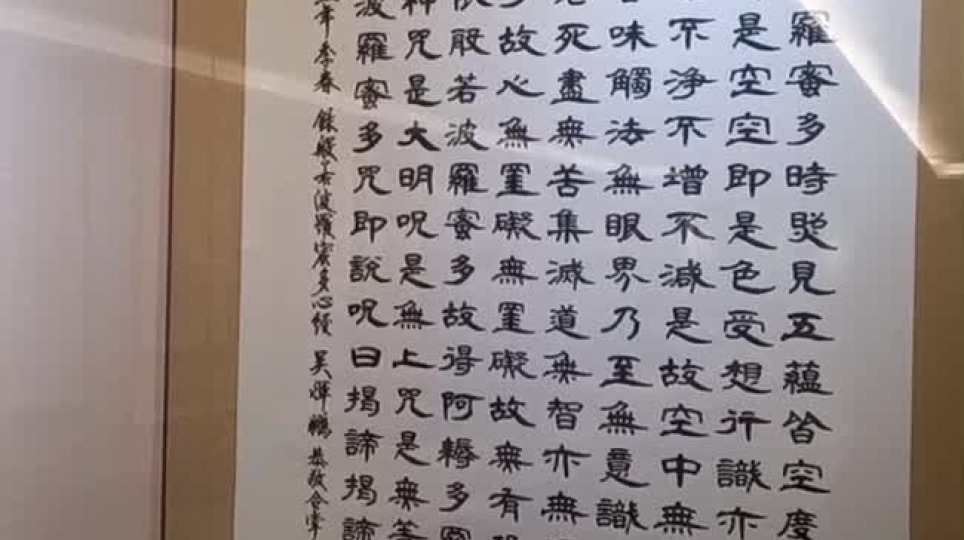 羅蜜多時照見五蘊皆空度
是空空即是色受想行識亦
不淨不增不減是故空中無
味觸法無眼界乃至無意識
死盡無苦集滅道無智亦無
故心無罣礙無罣礙故無有
般若波羅蜜多故得阿耨多羅
神咒是大明呪是無上咒是無等
波羅蜜多咒即說呪曰揭諦揭諦
年季春 錄般若波羅蜜多心經 吳暉鵬 恭敬合掌